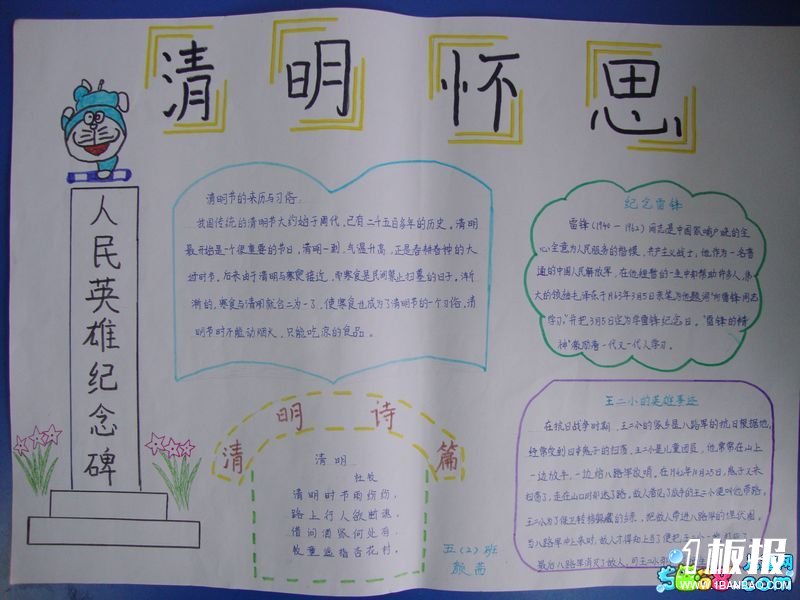 清明怀思
人民英雄纪念碑
清明节的来历与习俗:
我国传统的清明节大约始于周代,已有二千五百多年的历史。清明
最开始是一个很重要的节日,清明一到,气温升高,正是春耕春种的大
好时节。后来由于清明与寒食接近,而寒食是民间禁止扫墓的日子。渐
渐的,寒食与清明就合二为一了,使寒食也成为了清明节的一个习俗,清
明节时不能动烟火,只能吃凉的食品。
纪念雷锋
雷锋(1940—1962)同志是中国家喻户晓的全
心全意为人民服务的楷模,共产主义战士;他作为一名普
通的中国人民解放军,在他短暂的一生中却帮助许多人,伟
大的领袖毛泽东于1963年3月5日亲笔为他题词“向雷锋同志
学习。”并把3月5日定为学雷锋纪念日。“雷锋的精
神”激励着一代又一代人学习。
清明诗篇
清明
杜牧
清明时节雨纷纷,
路上行人欲断魂。
借问酒家何处有,
牧童遥指杏花村。
五(2)班
王二小的英雄事迹
在抗日战争时期,王二小的家乡是八路军的抗日根据地,
经常受到日本鬼子的扫荡,王二小是儿童团员,他常常在山上
一边放牛,一边给八路军放哨。在1942年10月25日,鬼子又来
扫荡了,走在山口时迷了路。敌人看见了放牛的王二小便叫他带路,
王二小为了保卫转移躲藏的乡亲,把敌人带进八路军的埋伏圈,
最后八路军消灭了敌人,可王二小
1板报
WWW.1BANBAO.COM